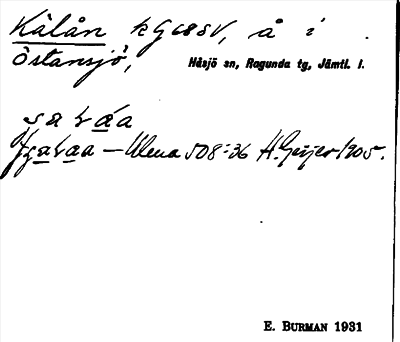 Kälån k G68SV, å i
Östansjö, Håsjö sn, Ragunda tg, Jämtl. l.
Ulma 508:36 H. Geijer 1905.
E. BURMAN 1931